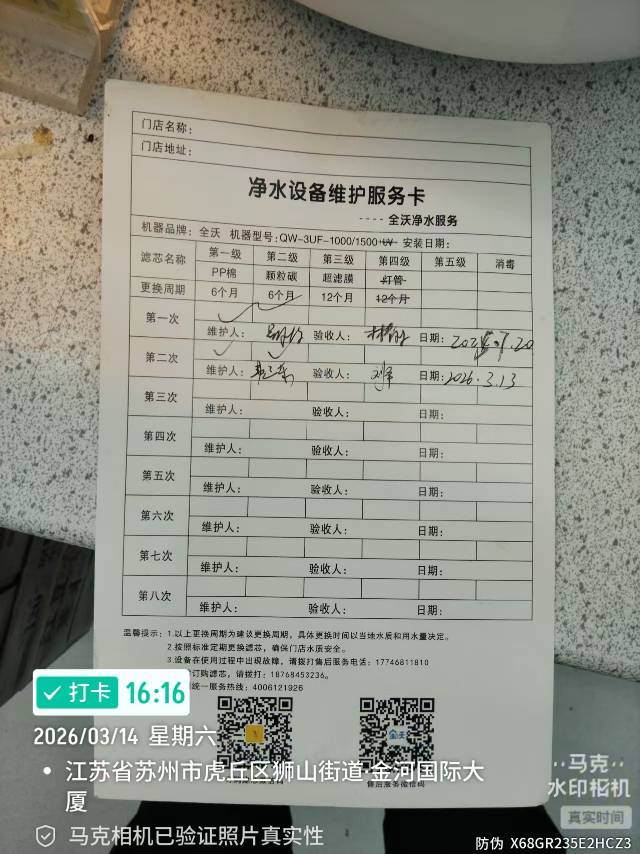 门店名称：
门店地址：
净水设备维护服务卡
---- 全沃净水服务
机器品牌：全沃 机器型号：QW-3UF-1000/1500+UV 安装日期：
滤芯名称 第一级 第二级 第三级 第四级 第五级 消毒
PP棉 颗粒碳 超滤膜 灯管
更换周期 6个月 6个月 12个月 12个月
第一次
维护人： 验收人： 日期：
第二次
维护人： 验收人： 日期：2026.3.13
第三次
维护人： 验收人： 日期：
第四次
维护人： 验收人： 日期：
第五次
维护人： 验收人： 日期：
第六次
维护人： 验收人： 日期：
第七次
维护人： 验收人： 日期：
第八次
维护人： 验收人： 日期：
温馨提示：1.以上更换周期为建议更换周期，具体更换时间以当地水质和用水量决定。
2.按照标准定期更换滤芯，确保门店水质安全。
3.设备在使用过程中出现故障，请拨打售后服务电话：17746811810
订购滤芯，请拨打：18768453236。
统一服务热线：4006121926
全沃
售后服务微信码
打卡 16:16
2026/03/14 星期六
江苏省苏州市虎丘区狮山街道·金河国际大
厦
马克相机已验证照片真实性
马克
水印相机
真实时间
防伪 X68GR235E2HCZ3